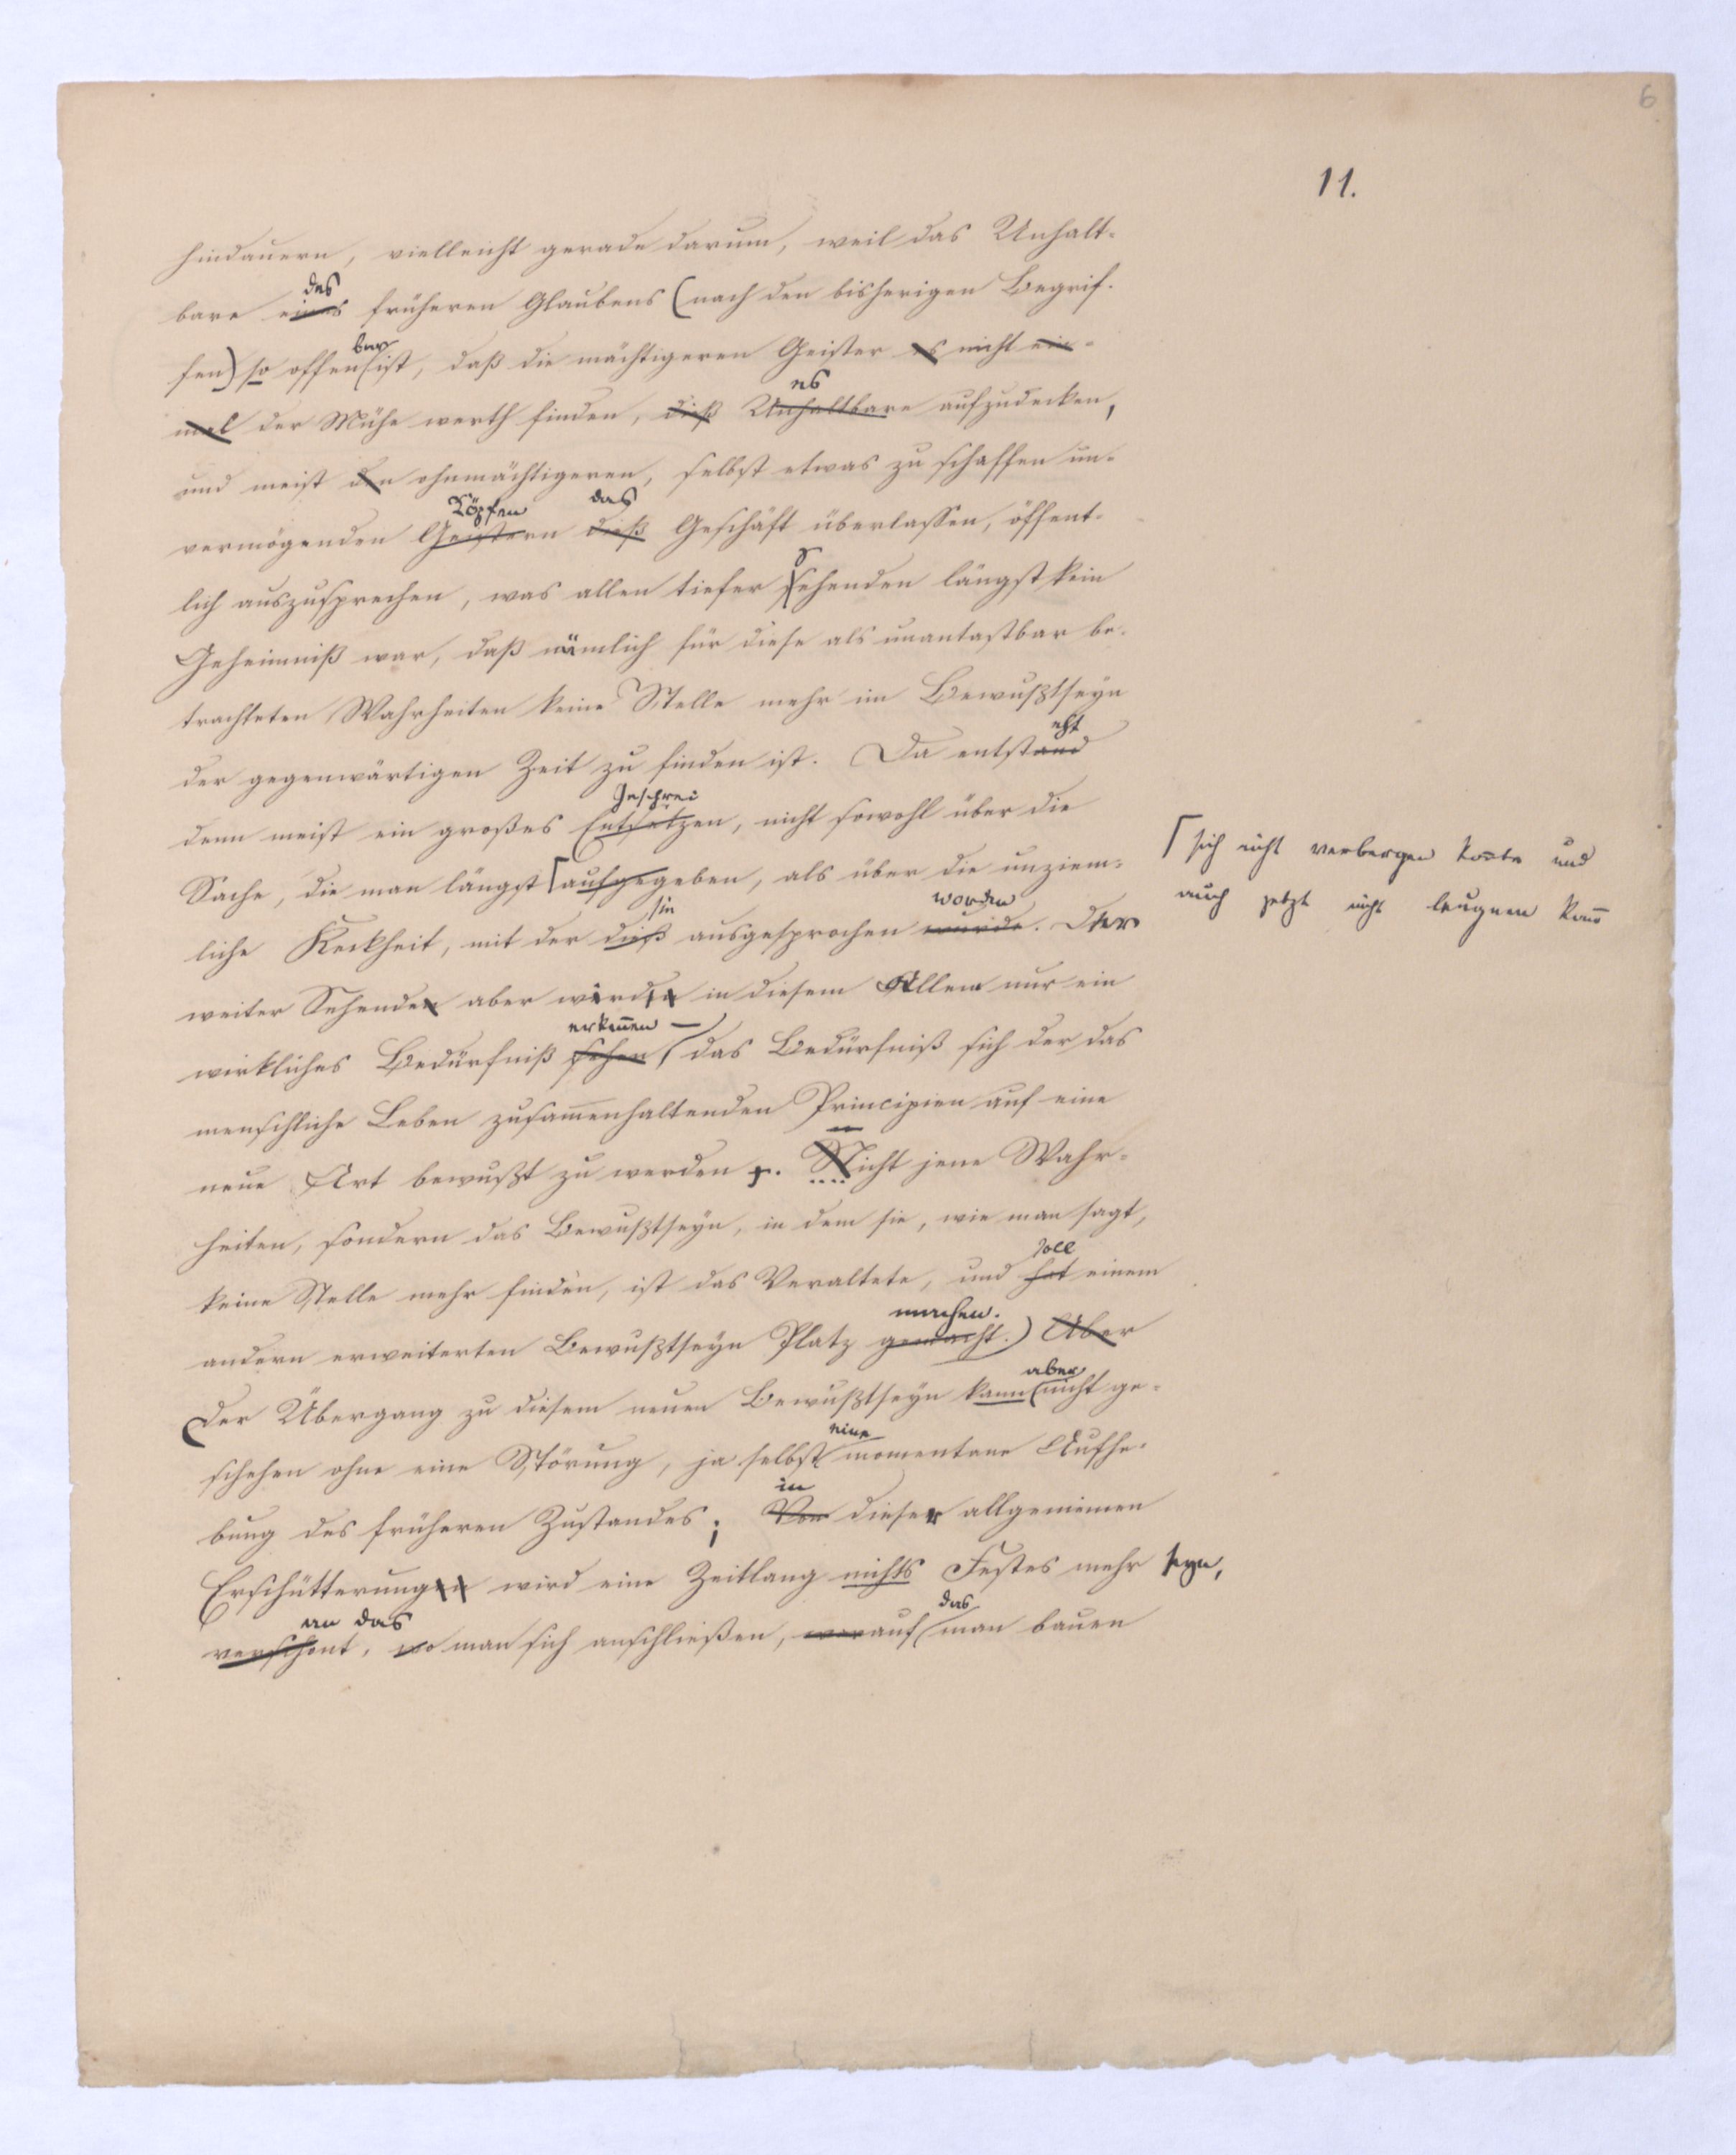 6
11.
hindauern, vielleicht gerade darum, weil das Unhalt-
des
bare eines früheren Glaubens (nach den bisherigen Begrif-
bar
fen) so offen ist, daß die mächtigeren Geister es nicht ein-
es
mal der Mühe werth finden, dieß Unhaltbare aufzudecken,
und meist den ohnmächtigeren, selbst etwas zu schaffen un-
Köpfen das
vermögenden Geistern dieß Geschäft überlassen, öffent-
lich auszusprechen, was allen tiefer Sehenden längst kein
Geheimniß war, daß nämlich für diese als unantastbar be-
trachteten Wahrheiten keine Stelle mehr im Bewußtseyn
eht
der gegenwärtigen Zeit zu finden ist. Da entstand
Geschrei
denn meist ein großes Entsetzen, nicht sowohl über die
Sache, die man längst aufgegeben, als über die unziem-
sich nicht verbergen konte und
auch jetzt nicht leugnen kann
sie worden
liche Keckheit, mit der dieß ausgesprochen wurde. Der
weiter Sehenden aber wird in diesem Allem nur ein
erkennen —
wirkliches Bedürfniß sehen, das Bedürfniß sich der das
menschliche Leben zusammenhaltenden Principien auf eine
neue Art bewußt zu werden. Nicht jene Wahr-
heiten, sondern das Bewußtseyn, in dem sie, wie man sagt,
keine Stelle mehr finden, ist das Veraltete, und hat einem
soll
machen.
andern erweiterten Bewußtseyn Platz gemacht.) Aber
aber
Der Übergang zu diesem neuen Bewußtseyn kann nicht ge-
eine
schehen ohne eine Störung, ja selbst momentane Aufhe-
in
bung des früheren Zustandes; Von dieser allgemeinen
Erschütterungen wird eine Zeitlang nichts Festes mehr seyn,
an das das
verschont, wo man sich anschließen, worauf man bauen